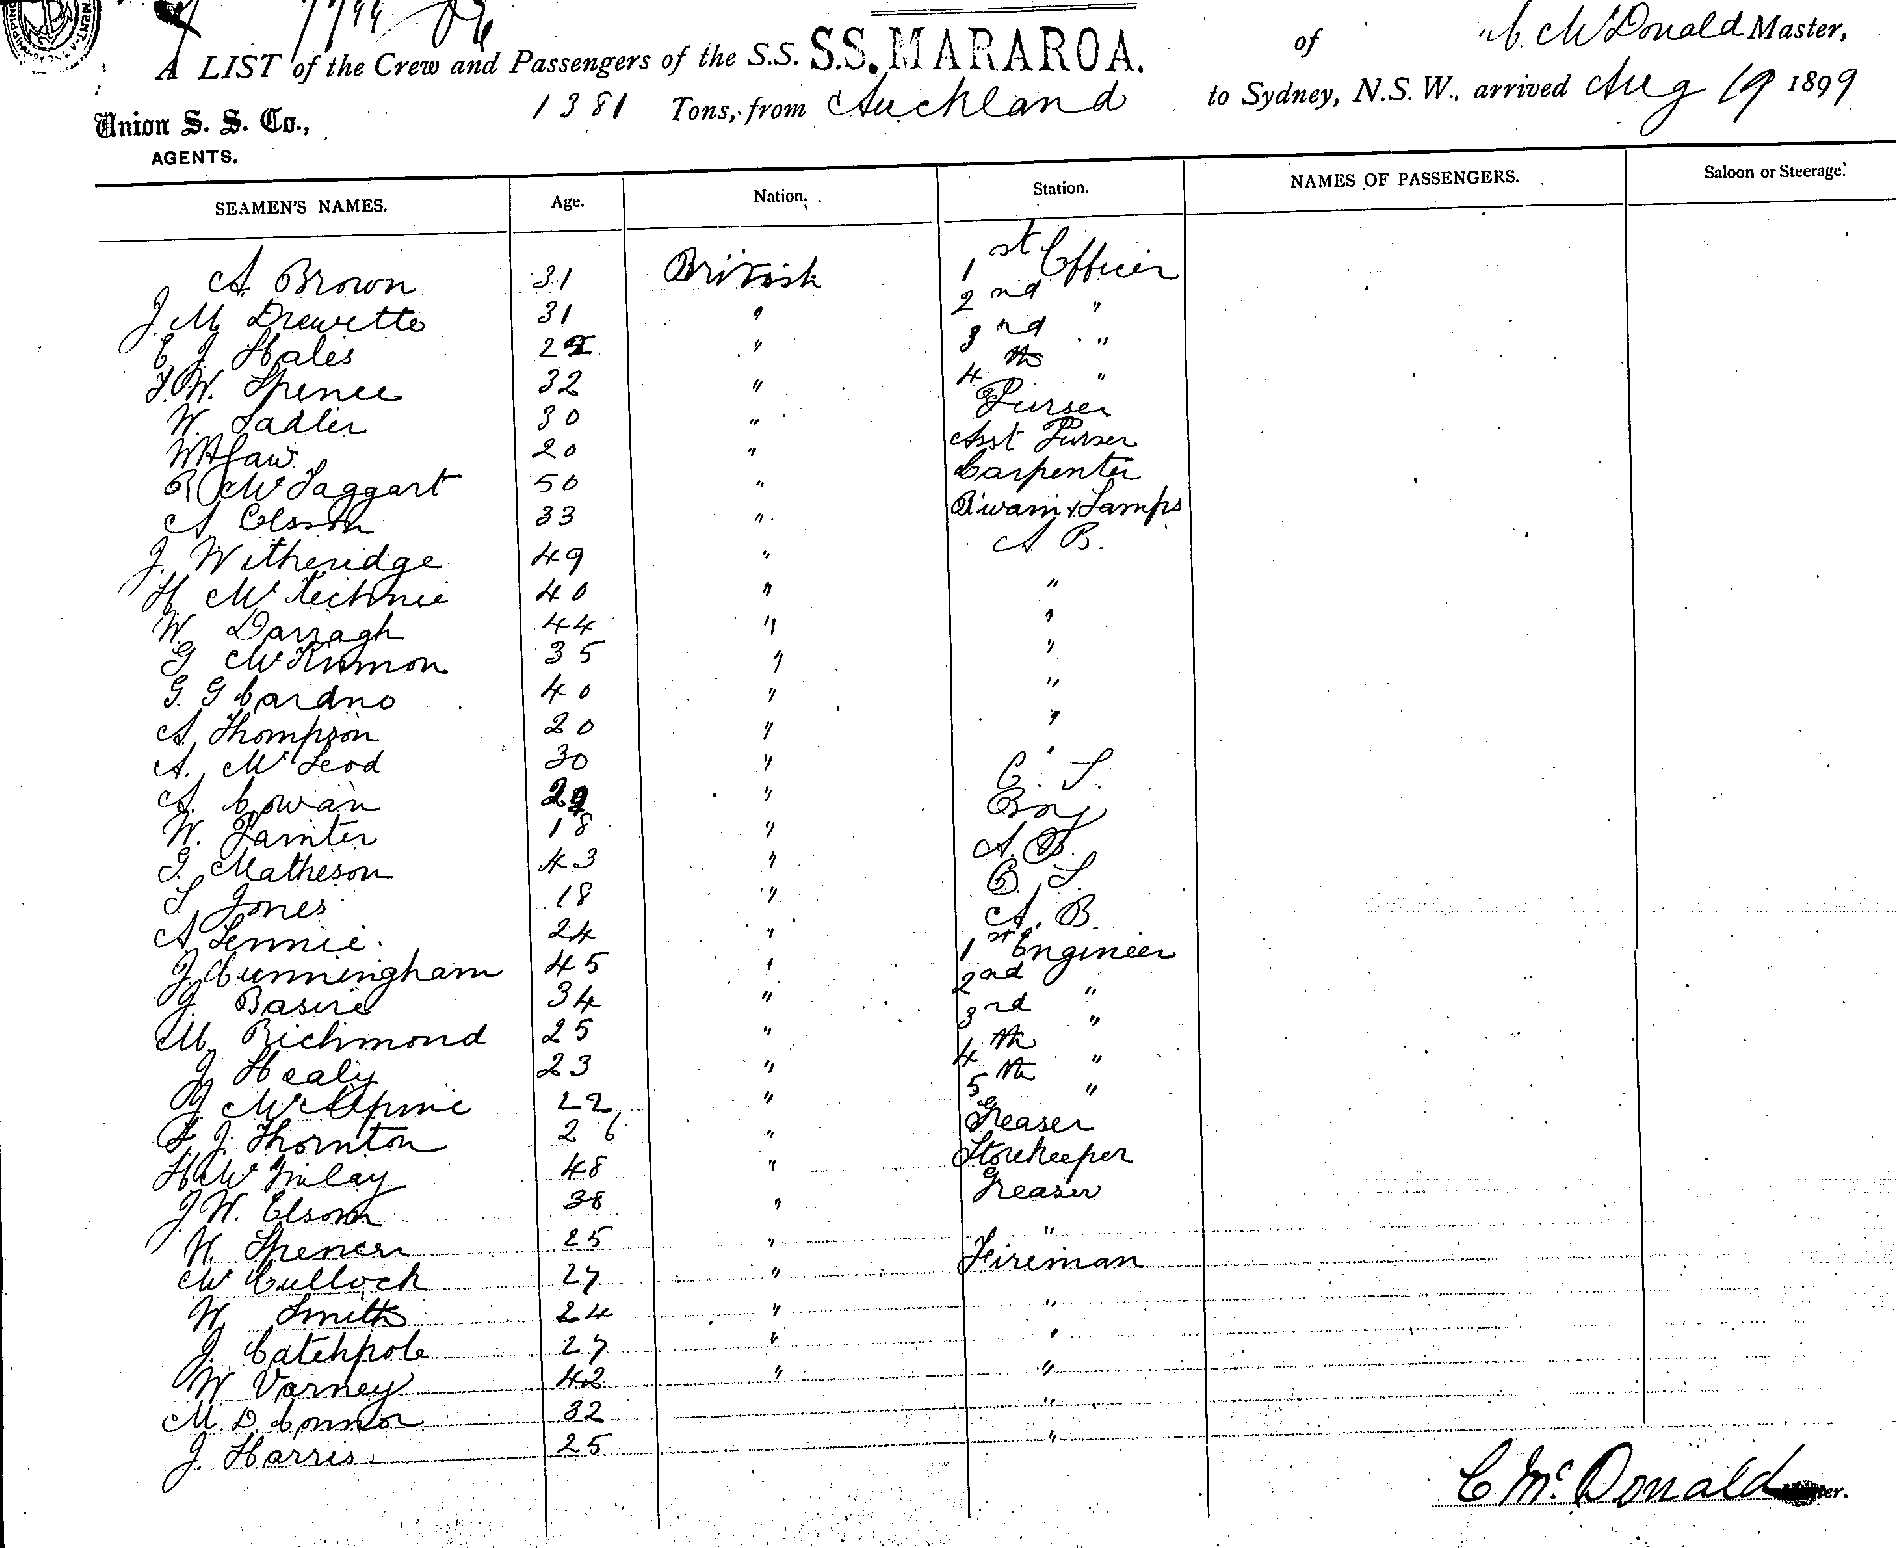 A LIST of the Crew and Passengers of the S.S. S.S. MARAROA. of C. McDonald Master,
Union S. S. Co., 1381 Tons, from Auckland to Sydney, N.S.W., arrived Aug 19 1899
AGENTS.
SEAMEN'S NAMES. Age. Nation. Station. NAMES OF PASSENGERS. Saloon or Steerage.
A Brown 31 British 1st Officer
J. M. Drewette 31 " 2nd "
E J Hales " 3rd "
F. W. Spence 32 " 4th "
W. Sadler 30 " Purser
W H Law 20 " Asst Purser
R McTaggart 50 " Carpenter
A Olsson 33 " & Lamps
J. Witheridge 49 " A B.
H McKechnie 40 " "
W. Darragh 44 " "
G McKinnon 35 " "
G. G Cardno 40 " "
A. Thompson 20 " "
A. McLeod 30 " "
A. Cowan 29 " O. S.
W. Painter 18 " Boy
J. Matheson 43 " A. B.
S. Jones 18 " O. S.
A Lennie 24 " A. B.
J Cunningham 45 " 1st Engineer
J. Basire 34 " 2nd "
M. Richmond 25 " 3rd "
J Healy 23 " 4th "
J McAlpine 22 " 5th "
F. J. Thornton 26 " Greaser
H McFinlay 48 " Storekeeper
J W. Elsom 38 " Greaser
H. Spencer 25 " "
McCulloch 27 " Fireman
W Smith 24 " "
J. Catchpole 27 " "
W Varney 42 " "
M. D. Connor 32 "
J. Harris 25 "
C McDonald